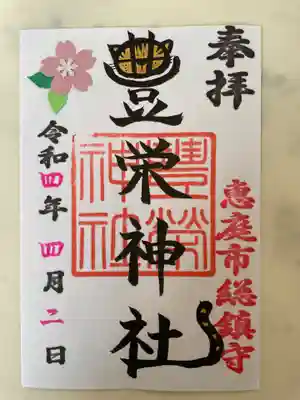 奉拝
恵庭市総鎮守
豊栄神社
豊榮
神社
令和四年 四月二日